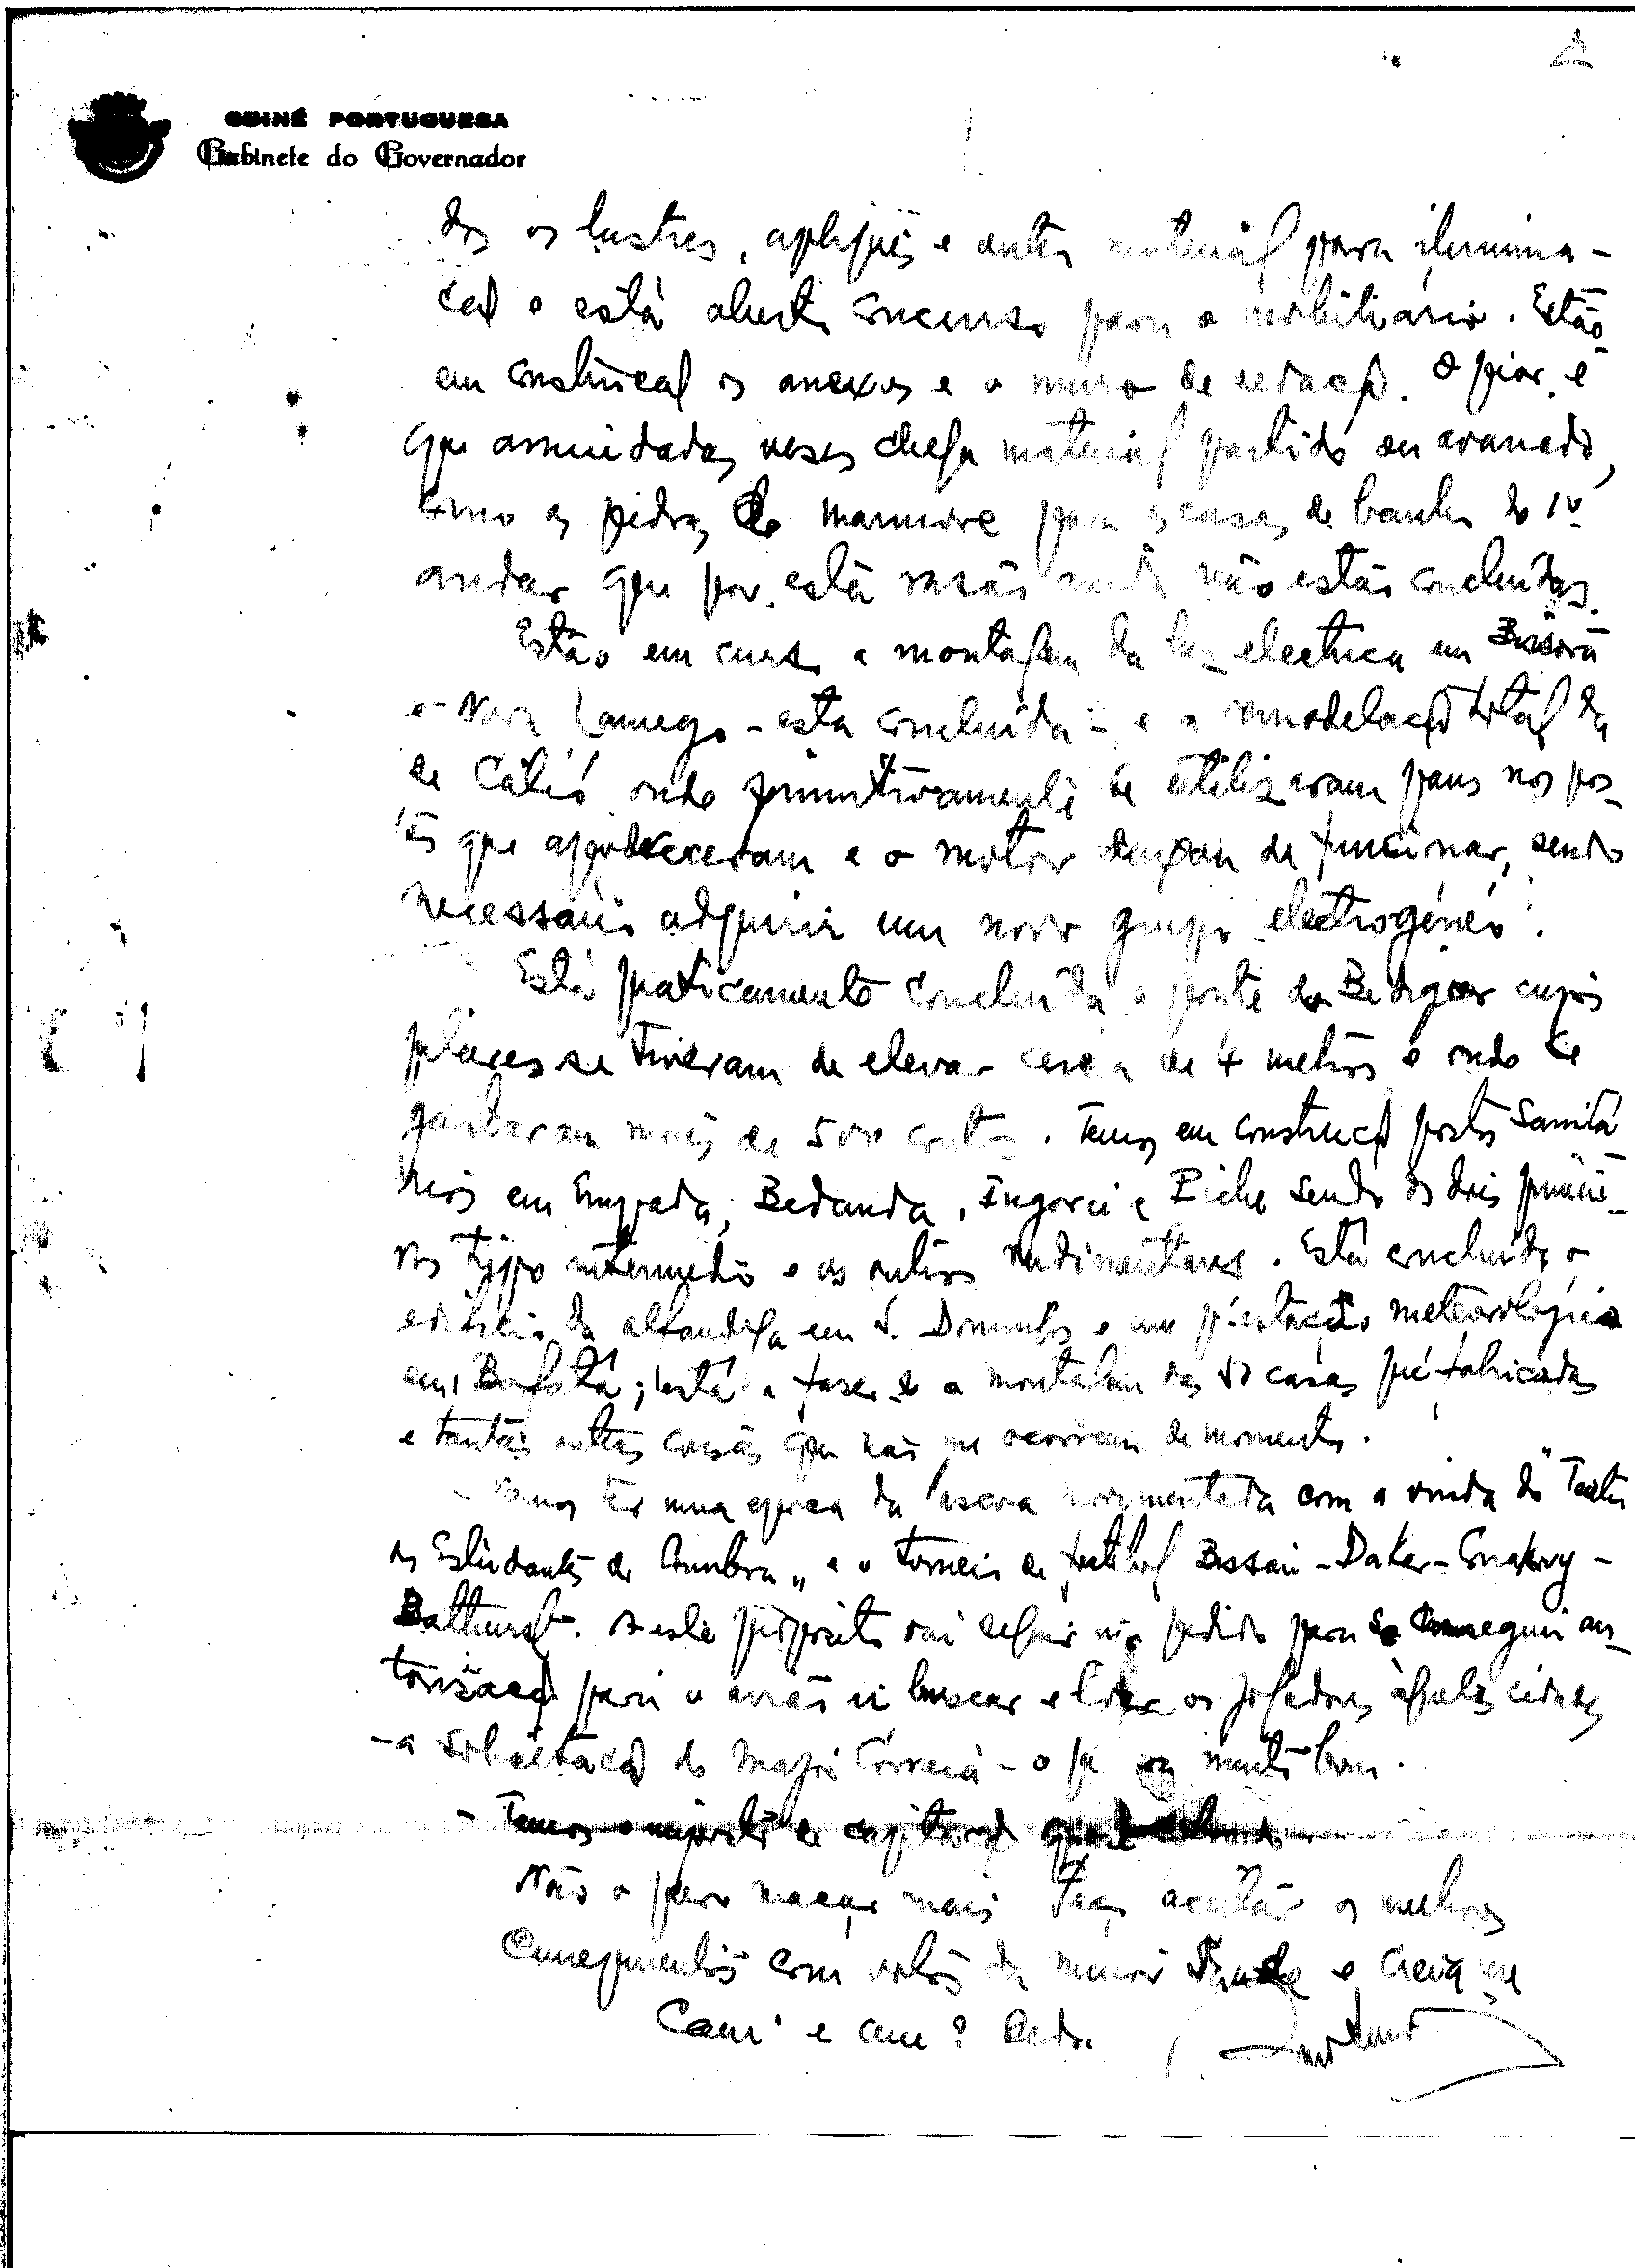 GUINÉ PORTUGUESA
Gabinete do Governador
dos os lustres, apliques e outro material para ilumina-
ção e está aberto concurso para o mobiliário. Estão
em construção os anexos e o muro de vedação. O pior é
que amiudadas vezes chega material partido ou avariado,
como as pedras de marmore para as casas de banho do 1º
andar que por esta razão ainda não estão concluidas.
Estão em curso a montagem da luz electrica em Bissorã
e Nova Lamego - esta concluída - e a remodelação total da
de Catió onde primitivamente se utilizaram paus nos pos-
tes que apodreceram e o motor deixou de funcionar, sendo
necessário adquirir um novo grupo electrogéneo.
Está praticamente concluida a ponte de cujos
pilares se tiveram de elevar cerca de 4 metros e onde se
gastaram mais de 500 contos. Temos em construção postos Sanitá
rios em Empada, Bedanda, Ingoré e Piche sendo os dois primei-
ros typo intermedio e os outros rudimentares. Está concluido o
edificio da alfandega em S. Domingos e um pª estação meteorológica
em Bafatá; está a fazer-se a montagem das 50 casas pré-fabricadas
e tantas outras coisas que não me ocorrem de momento.
- Vamos ter uma epoca da Pascoa movimentada com a vinda do "Teatro
dos Estudantes de Coimbra" e o torneio de futebol Bissau - Dakar - Conakry -
Bathurst. A este propósito vai seguir um pedido para se conseguir au-
torisação para o avião ir buscar e levar os jogadores àquelas cidades
- a solicitação do Major Correia - o que muito bom.
- Temos o imposto de capitação quase cobrado
Não o quero maçar mais. Peço aceitar os melhores
Cumprimentos com votos da maior saude e creia-me
Cam. e am.º ded.